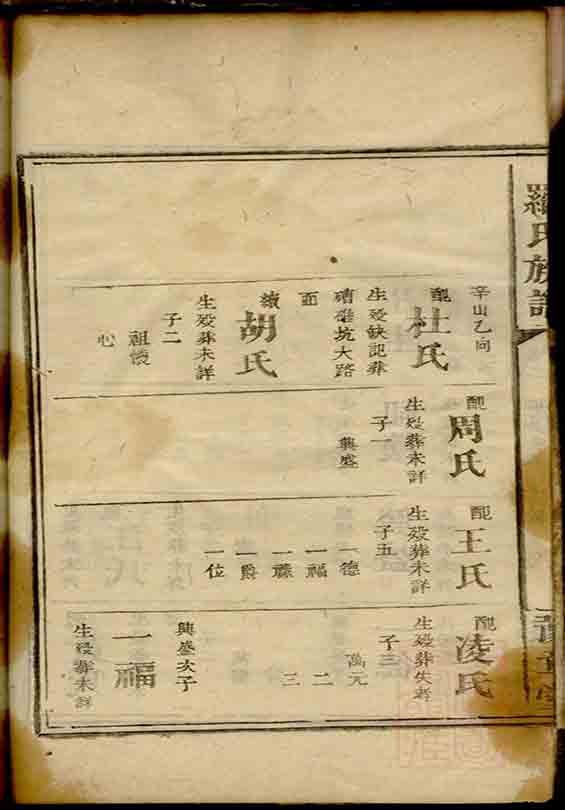 羅氏族譜
辛山乙向
配
杜氏
生殁缺記葬
磜碓坑大路
面
續
胡氏
生殁葬未詳
子二
祖懷
心
配
周氏
生殁葬未詳
子一
興盛
配
王氏
生殁葬未詳
子五
一德
一福
一祿
一爵
一位
配
凌氏
生殁葬失考
子三
萬元
二
三
興盛次子
一福
生殁葬未詳
豫章堂